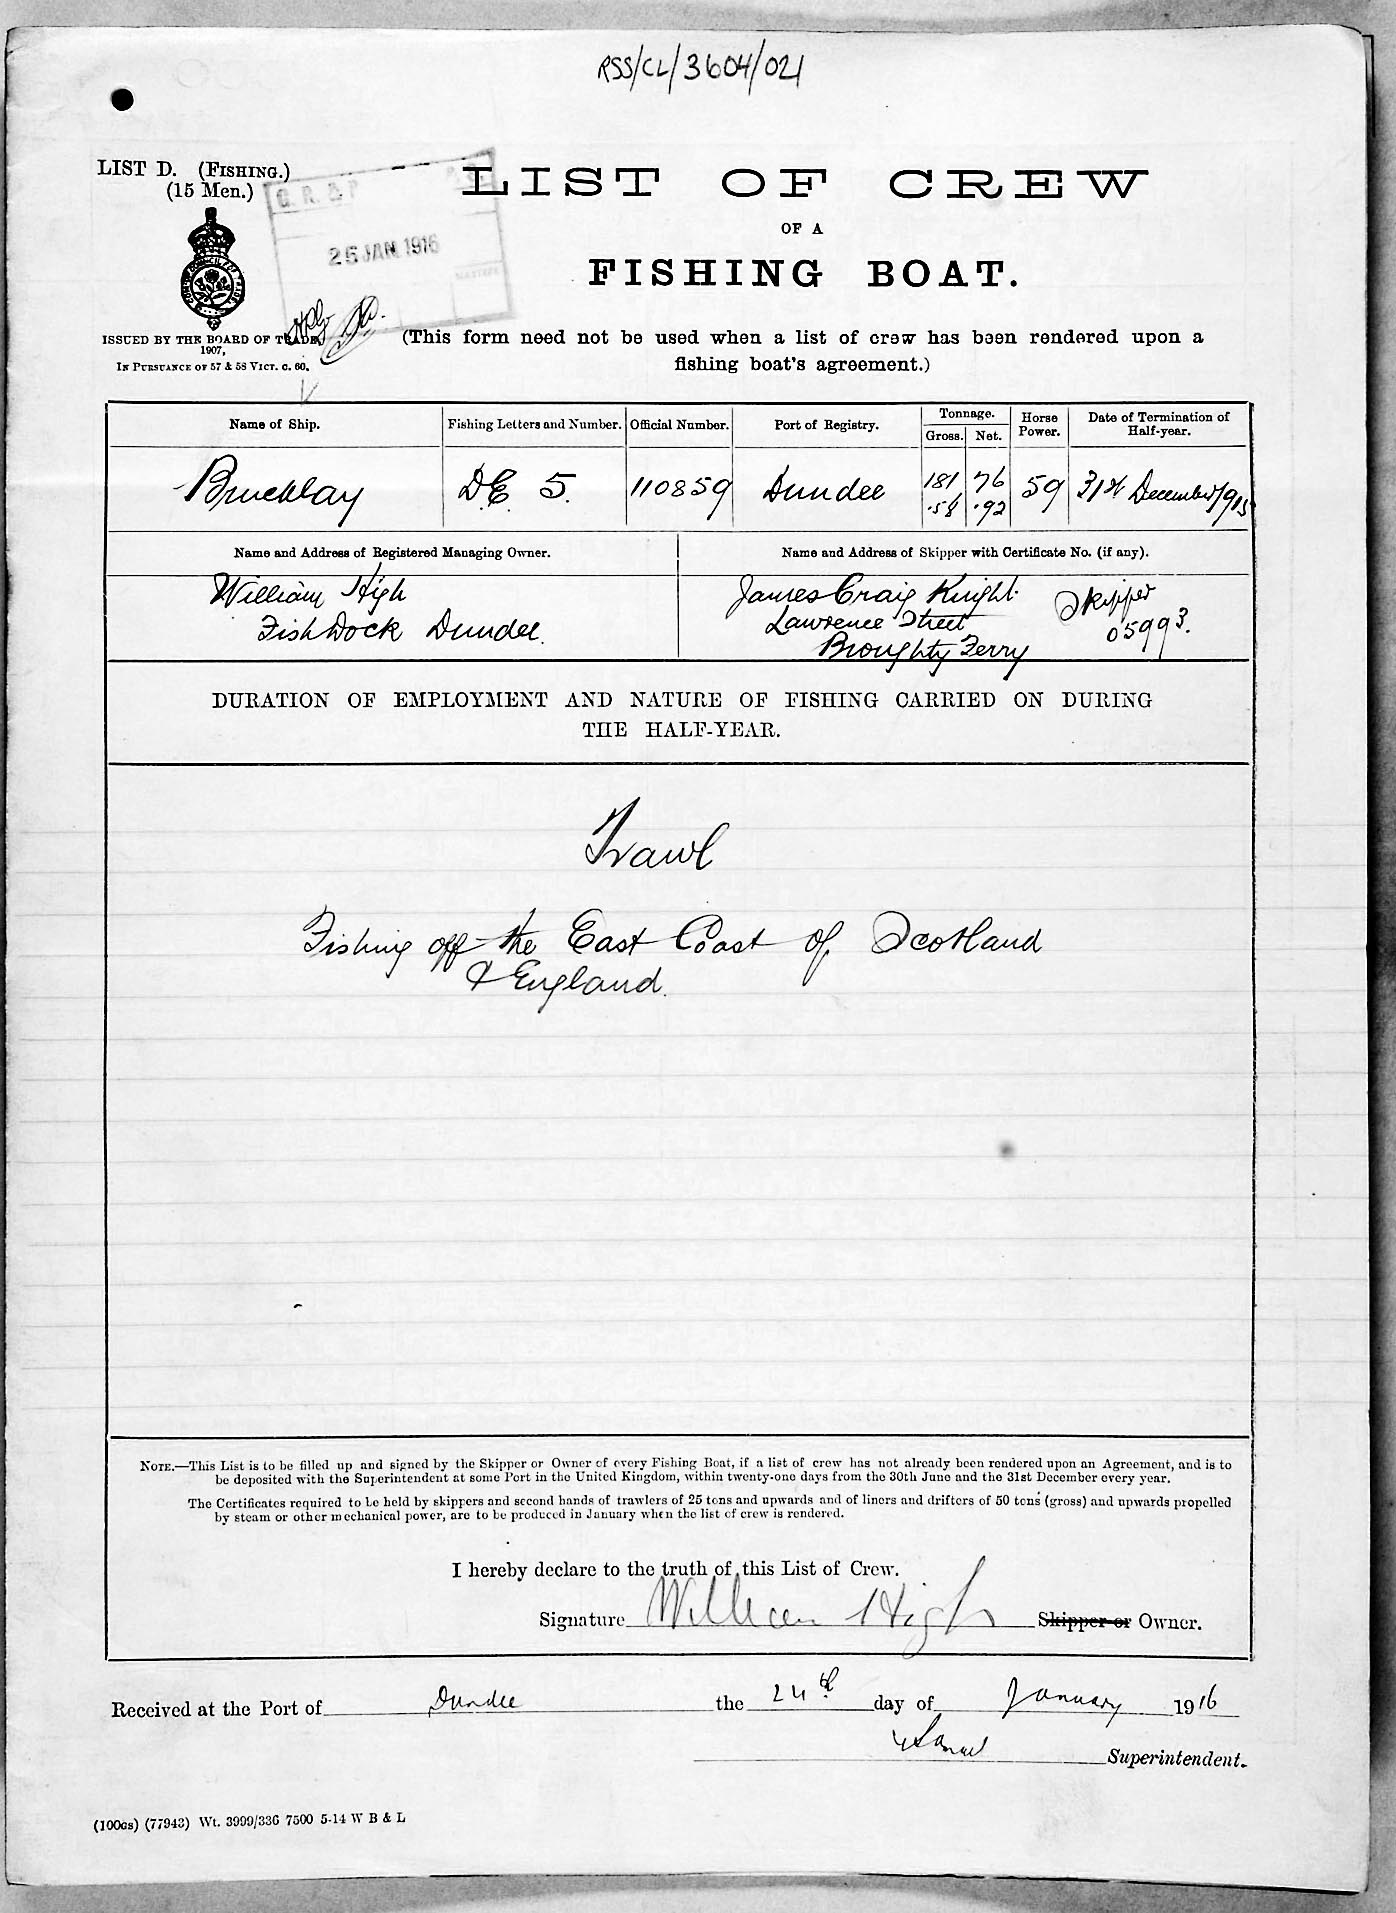 RSS/CL/3604/021
LIST D. (FISHING.)
(15 Men.)
26 JAN. 1916
LIST OF CREW
OF A
FISHING BOAT.
ISSUED BY THE BOARD OF TRADE,
1907,
IN PURSUANCE OF 57 & 58 VICT. C. 60.
(This form need not be used when a list of crew has been rendered upon a
fishing boat's agreement.)
Name of Ship.
Fishing Letters and Number.
Official Number.
Port of Registry.
Tonnage.
Gross.
Net.
Horse
Power.
Date of Termination of
Half-year.
Brucklay
D.E. 5.
110859
Dundee
181
.58
76
.92
59
31st December 1915
Name and Address of Registered Managing Owner.
Name and Address of Skipper with Certificate No. (if any).
William High
Fish Dock Dundee.
James Craig Knight.
Lawrence Street
Broughty Ferry
Skipper
05993.
DURATION OF EMPLOYMENT AND NATURE OF FISHING CARRIED ON DURING
THE HALF-YEAR.
Trawl
Fishing off the East Coast of Scotland
& England.
NOTE.—This List is to be filled up and signed by the Skipper or Owner of every Fishing Boat, if a list of crew has not already been rendered upon an Agreement, and is to
be deposited with the Superintendent at some Port in the United Kingdom, within twenty-one days from the 30th June and the 31st December every year.
The Certificates required to be held by skippers and second hands of trawlers of 25 tons and upwards and of liners and drifters of 50 tons (gross) and upwards propelled
by steam or other mechanical power, are to be produced in January when the list of crew is rendered.
I hereby declare to the truth of this List of Crew.
Signature William High Skipper or Owner.
Received at the Port of Dundee the 24th day of January 1916
Superintendent.
(100gs) (77943) Wt. 3999/336 7500 5-14 W B & L